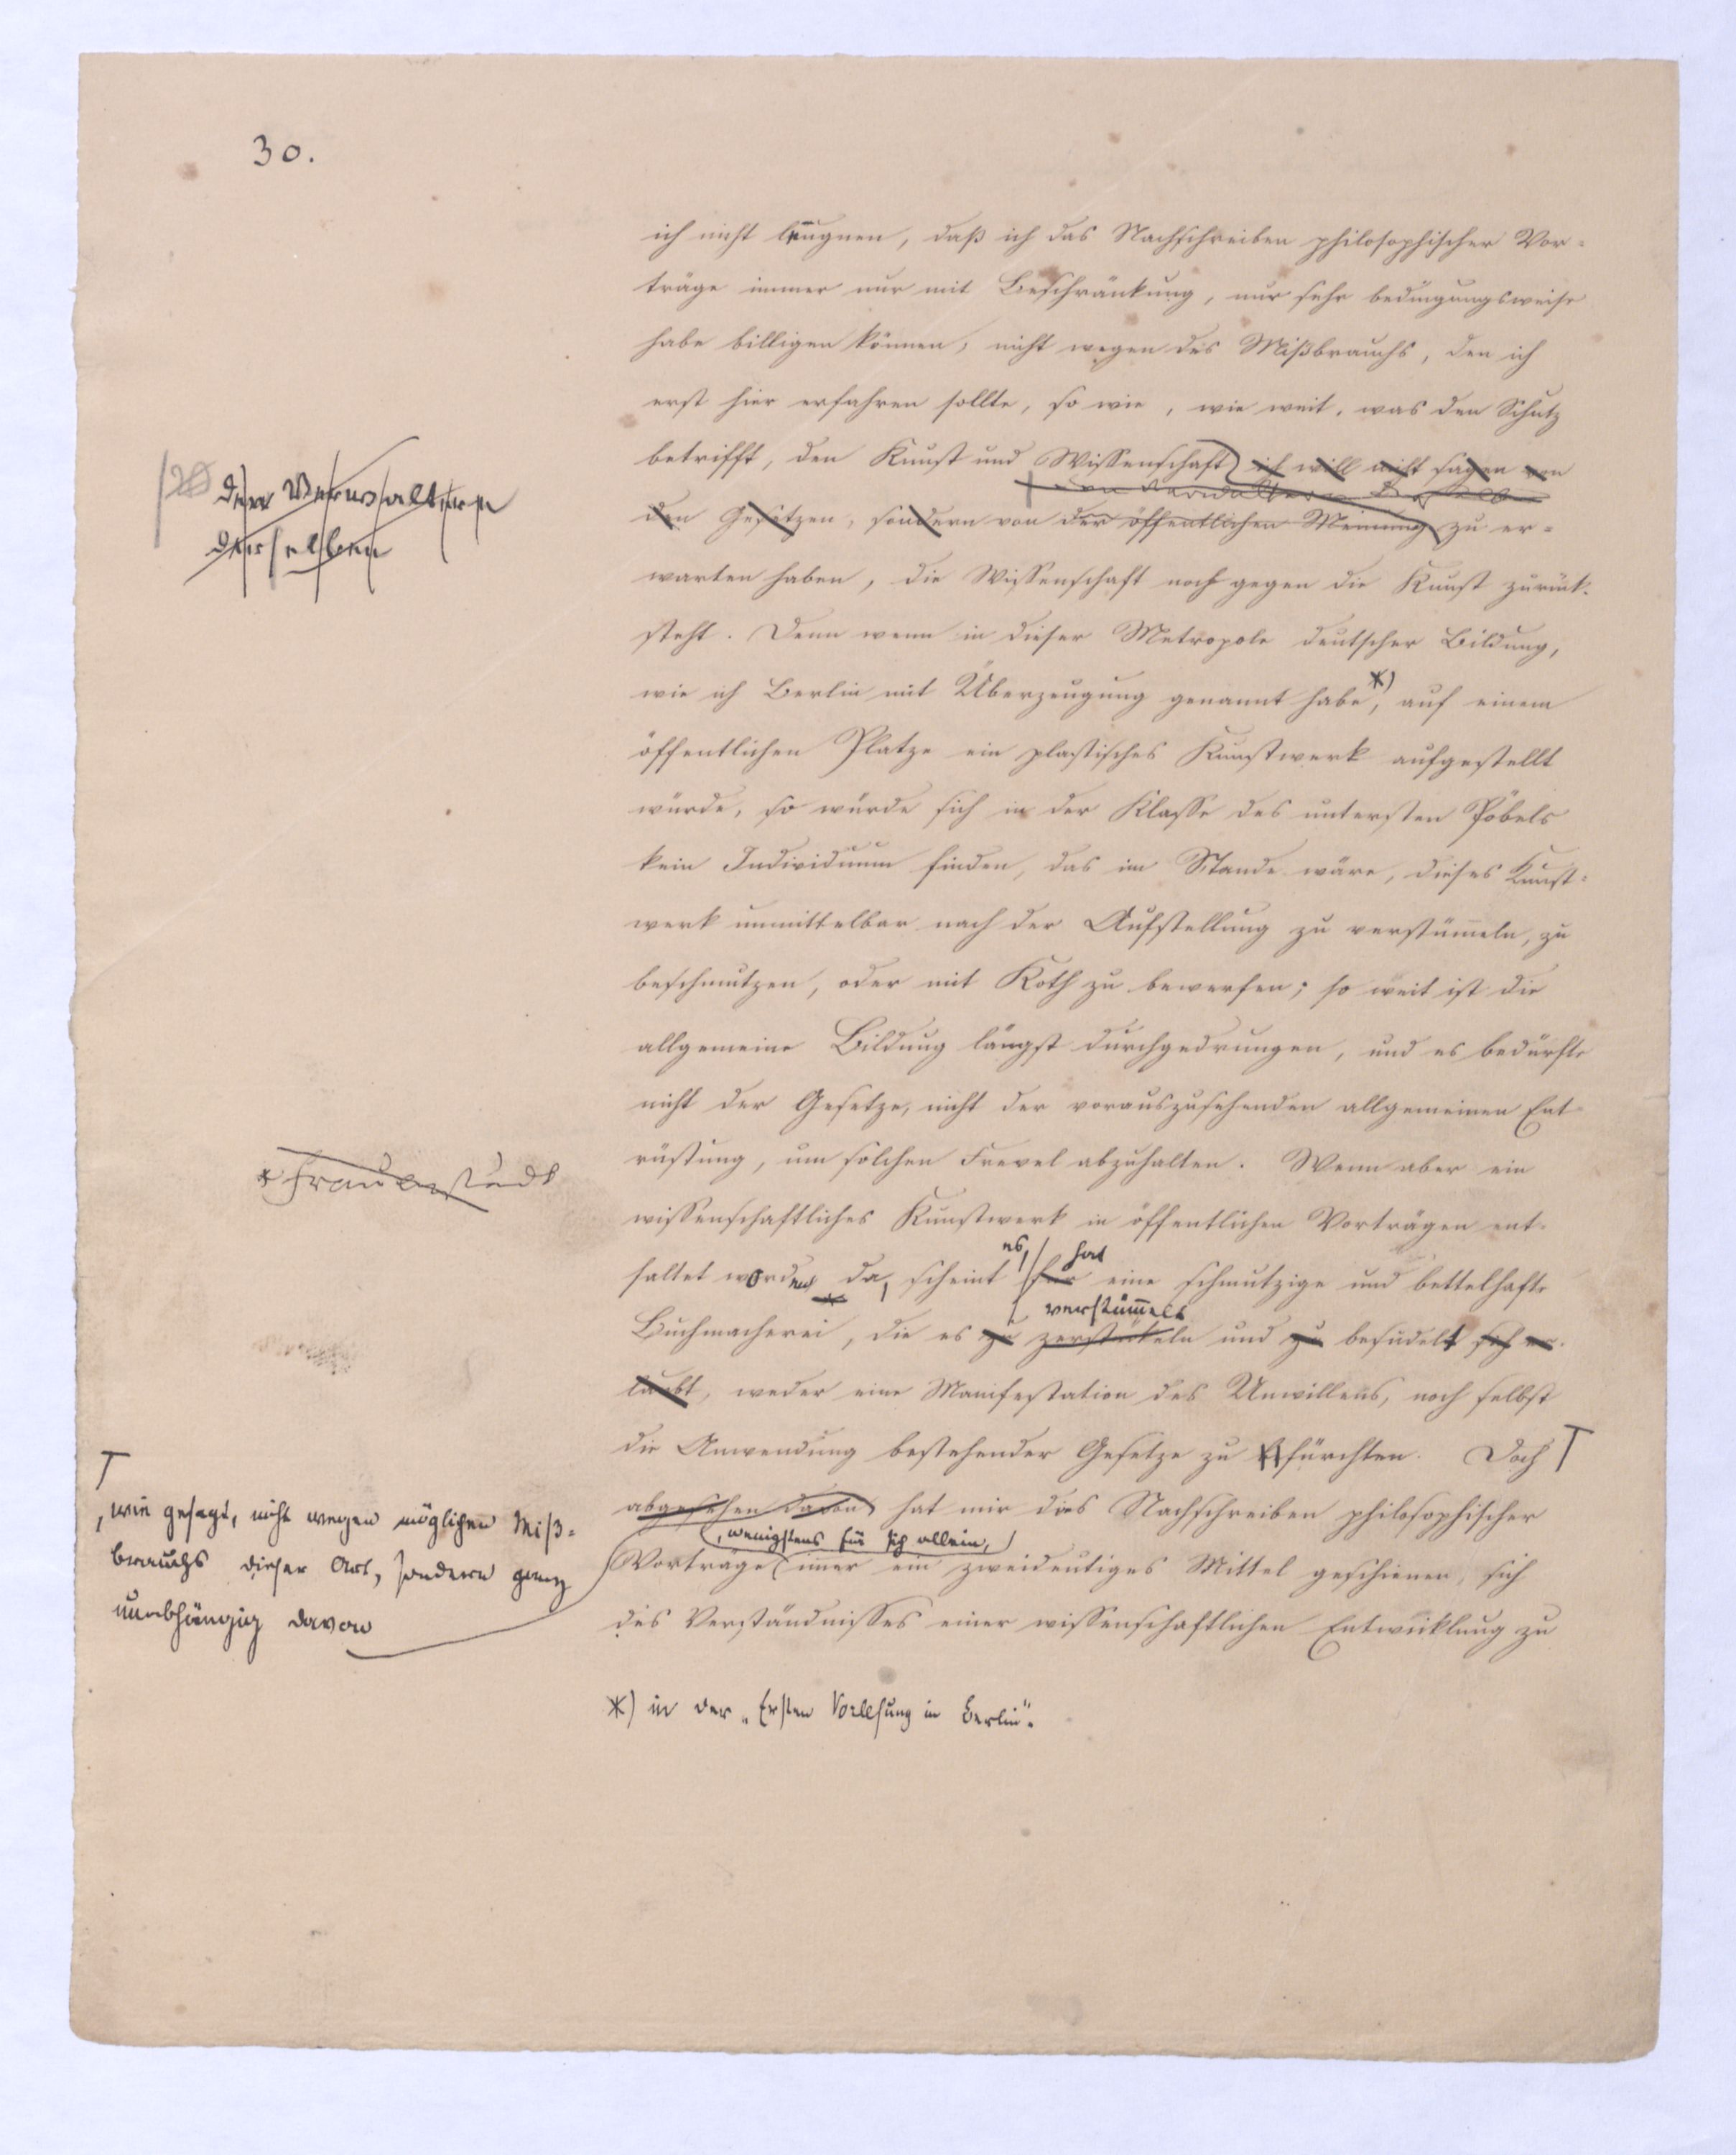 30.
ich nicht läugnen, daß ich das Nachschreiben philosophischer Vor-
träge immer nur mit Beschränkung, nur sehr bedingungsweise
habe billigen können; nicht wegen des Mißbrauchs, den ich
erst hier erfahren sollte, so wie, wie weit, was den Schutz
betrifft, den Kunst und Wissenschaft ich will nicht sagen von
von den Verwaltern derselben
den Gesetzen, sondern von der öffentlichen Meinung zu er-
warten haben, die Wissenschaft noch gegen die Kunst zurück-
steht. Denn wenn in dieser Metropole deutscher Bildung,
wie ich Berlin mit Überzeugung genannt habe*), auf einem
öffentlichen Platze ein plastisches Kunstwerk aufgestellt
würde, so würde sich in der Klasse des untersten Pöbels
kein Individuum finden, das im Stande wäre, dieses Kunst-
werk unmittelbar nach der Aufstellung zu verstüm̄eln, zu
beschmutzen, oder mit Koth zu bewerfen; so weit ist die
allgemeine Bildung längst durchgedrungen, und es bedürfte
nicht der Gesetze, nicht der vorauszusehenden allgemeinen Ent-
rüstung, um solchen Frevel abzuhalten. Wenn aber ein
wissenschaftliches Kunstwerk in öffentlichen Vorträgen ent-
es, hat
faltet worden, da, scheint für eine schmutzige und bettelhafte
verstüm̄elt
Buchmacherei, die es zu zerstückeln und zu besudelt sich er-
laubt, weder eine Manifestation des Unwillens, noch selbst
die Anwendung bestehender Gesetze zu fürchten. Doch
abgesehen davon hat mir das Nachschreiben philosophischer
, wenigstens für sich allein,
Vorträge im̄er ein zweideutiges Mittel geschienen, sich
des Verständnisses einer wissenschaftlichen Entwicklung zu
*) in der „Ersten Vorlesung in Berlin".
den Verwaltern
derselben
* Frauenstädt
, wie gesagt, nicht wegen möglichen Miß-
brauchs dieser Art, sondern ganz
unabhängig davon